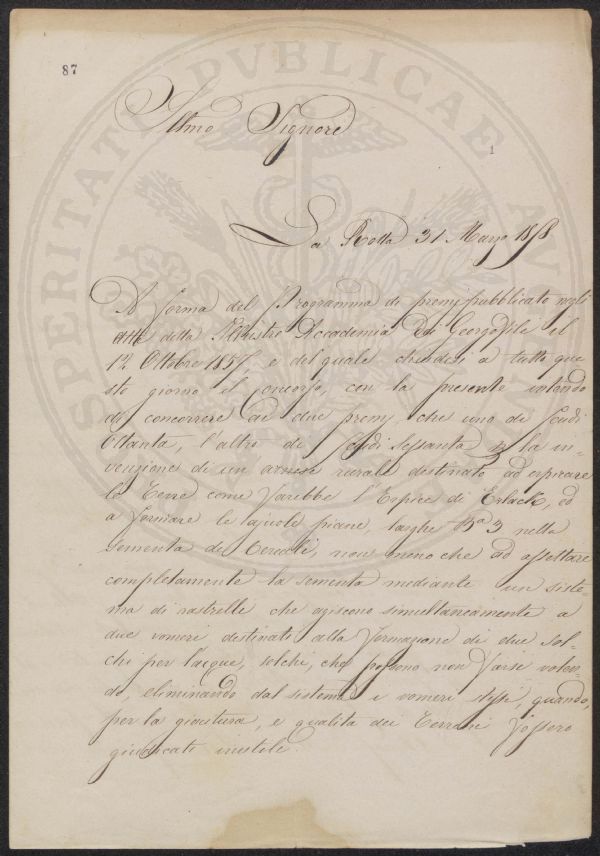 87
Illmo Signore
1
La Rotta 31 Marzo 1858
A forma del Programma di premj pubblicato negli
Atti della Illustre Accademia dei Georgofili il
12 Ottobre 1857, e del quale chiudesi a tutto que
sto giorno il concorso, con la presente intendo
di concorrere ai due premj, che uno di Scudi
Ottanta, l'altro di Scudi Sessanta p la in-
venzione di un arnese rurale destinato ad erpicare
le Terre come farebbe l'Erpice di Erlack, ed
a formare le ajuole piane, larghe Ba 3 nella
sementa dei Cereali, non meno che ad assettare
completamente la sementa mediante un siste-
ma di rastrelle che agiscono simultaneamente a
due vomeri destinati alla formazione di due sol-
chi per l'acque, solchi, che possono non farsi volen-
do, eliminando dal sistema i vomeri stessi, quando,
per la giacitura, e qualità dei Terreni fossero
giudicati inutili.
SPERITAT PVBLICAE